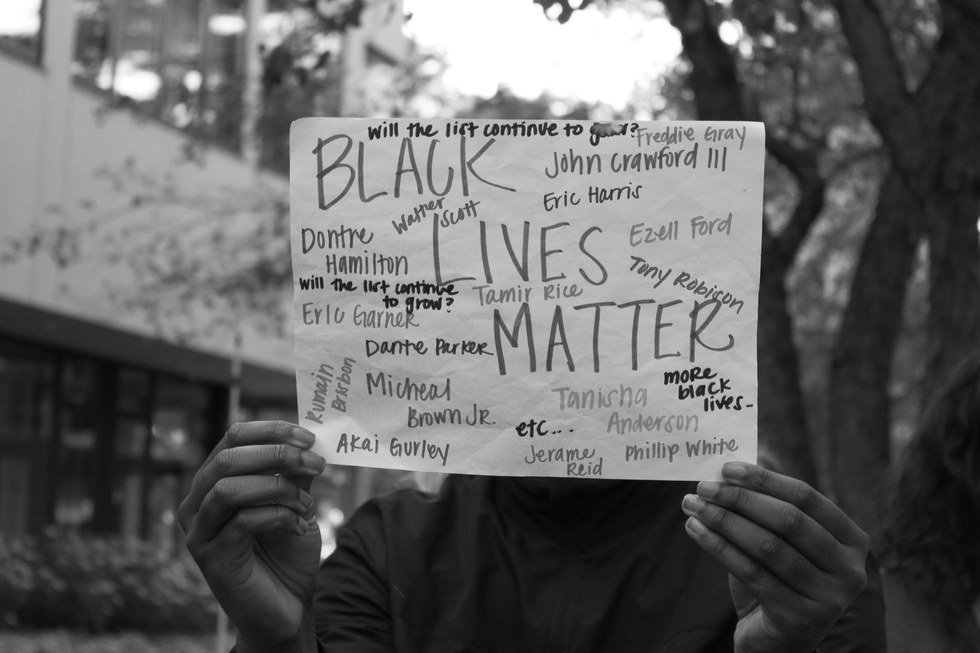 will the list continue to grow?
Freddie Gray
BLACK
John Crawford III
Eric Harris
Walter
Scott
Dontre
Hamilton
LIVES
Ezell Ford
Tony Robison
will the list continue
to grow?
Tamir Rice
Eric Garner
MATTER
Dante Parker
Rumain
Brisbon
Micheal
Brown JR.
Tanisha
Anderson
more
black
lives..
etc...
Akai Gurley
Jerame
Reid
Phillip White